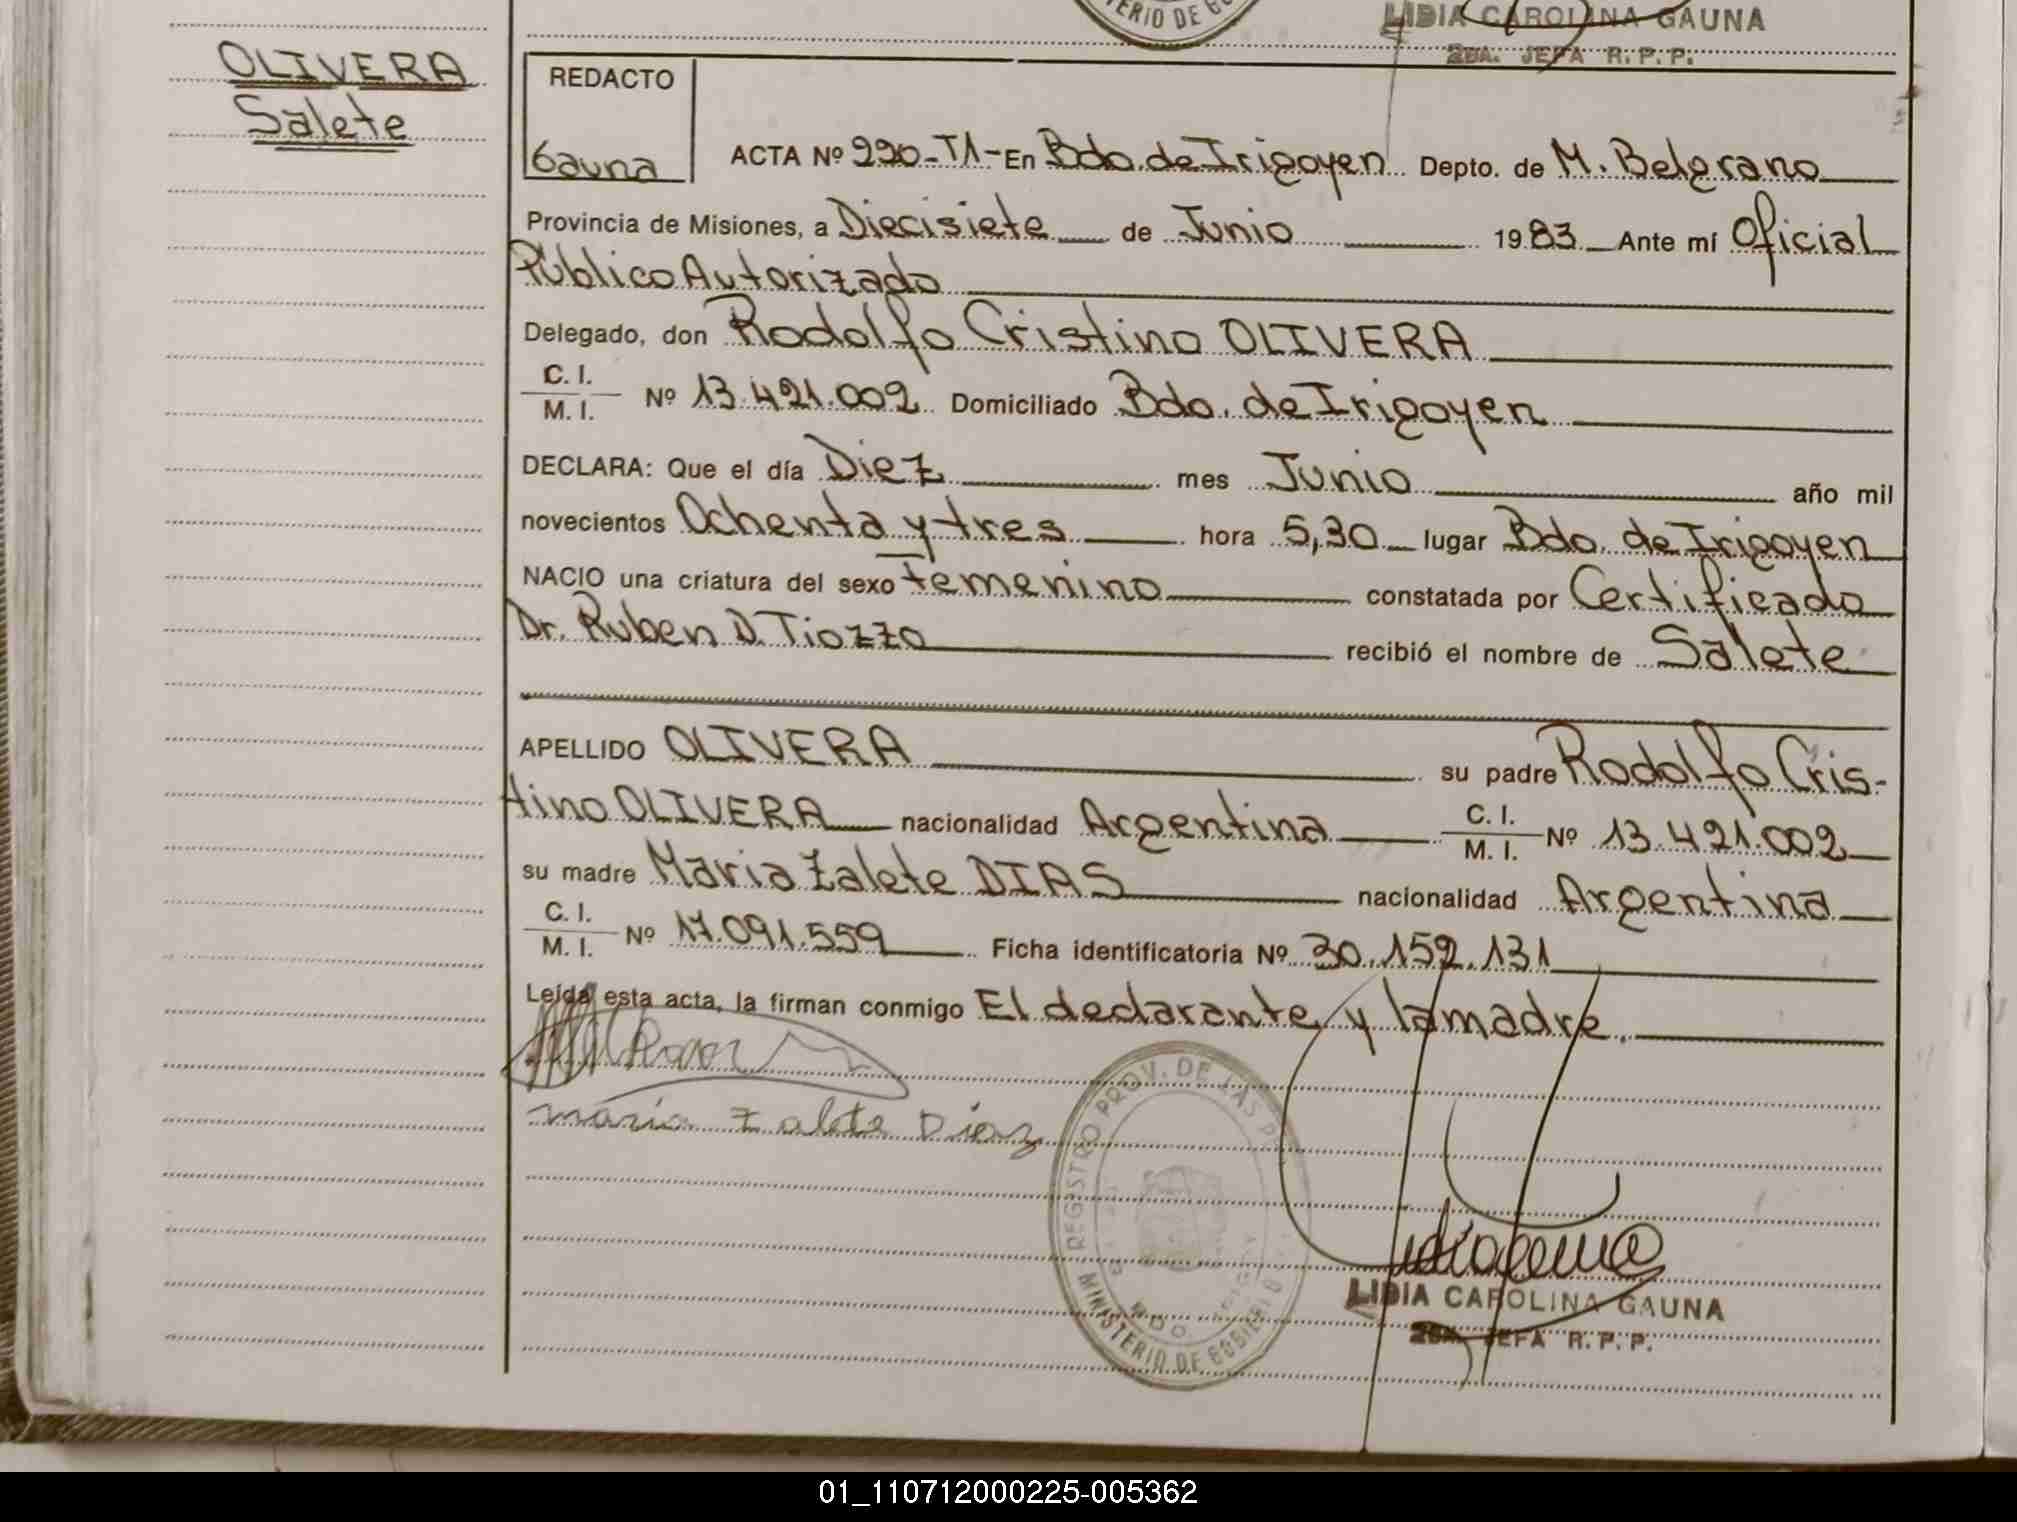 LIDIA CAROLINA GAUNA
2DA. JEFA R. P. P.
OLIVERA
Salete
REDACTO
Gauna
ACTA Nº 290-T1- En Bdo. de Irigoyen Depto. de M. Belgrano
Provincia de Misiones, a Diecisiete de Junio 1983 Ante mí Oficial
Público Autorizado
Delegado, don Rodolfo Cristino OLIVERA
C. I.
M. I. Nº 13.421.002 Domiciliado Bdo. de Irigoyen
DECLARA: Que el día Diez mes Junio año mil
novecientos Ochenta y tres hora 5,30 lugar Bdo. de Irigoyen
NACIO una criatura del sexo femenino constatada por Certificado
Dr. Ruben D. Tiozzo recibió el nombre de Salete
APELLIDO OLIVERA su padre Rodolfo Cris-
tino OLIVERA nacionalidad Argentina C. I. M. I. Nº 13.421.002
su madre Maria Zalete DIAS nacionalidad Argentina
C. I.
M. I. Nº 17.091.559 Ficha identificatoria Nº 30.152.131
Leída esta acta, la firman conmigo El declarante y la madre.
maria Zalete Diaz
REGISTRO PROV. DE LAS
MINISTERIO DE GOBIERNO
LIDIA CAROLINA GAUNA
2DA. JEFA R. P. P.
01_110712000225-005362